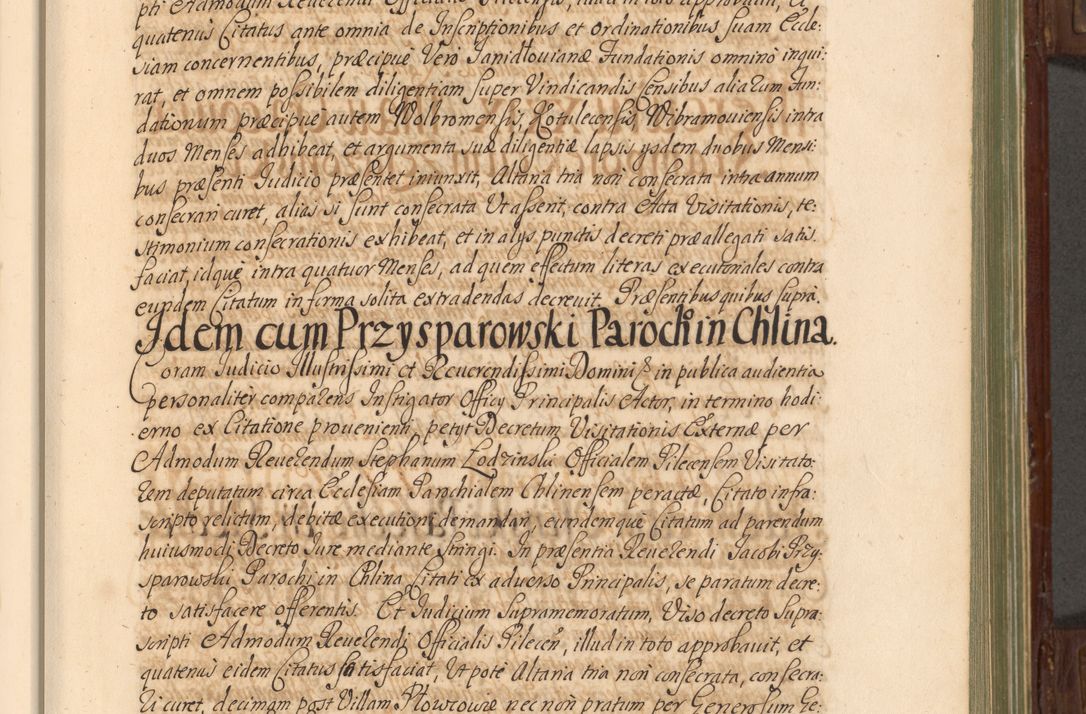 pti Admodum Reverendi Officialis Pilecensis, illud in toto approbavit, et
quatenus Citatus ante omnia de Inscriptionibus et ordinationibus suam Eccle:
siam concernentibus, præcipuè Verò Janidłovianæ Fundationis omninò inqui:
rat, et omnem possibilem diligentiam super Vindicandis sensibus aliarum Fun:
dationum præcipuè autem Wolbromensis, Kotulecensis, Wibramoviensis intra
duos Menses adhibeat, et argumenta suæ diligentiæ lapsis ysdem duobus Mensi:
bus præsenti Judicio præsentet iniunxit, Altaria tria non consecrata intra annum
consecrari curet, alias si sunt consecrata Ut assent, contra Acta Visitationis, te:
stimonium consecrationis exhibeat, et in alys punctis decreti præallegati satis.
faciat, idquè intra quatuor Menses, ad quem effectum literas executoriales contra
eundem Citatum in forma solita extradendas decrevit. Præsentibus quibus suprà.
Idem cum Przysparowski Paroch in Chlina.
Coram Judicio Illustrissimi et Reverendissimi Domini in publica audientia
personalitèr comparens Instigator Officy Principalis Actor, in termino hodi:
erno ex Citatione provenienti, petyt Decretum Visitationis Externæ per
Admodum Reverendum Stephanum Lodzinski Officialem Pilecensem Visitato:
rem deputatum circa Ecclesiam Parochialem Chlinensem peractæ, Citato infra:
scripto relictum, debitæ executioni demandari, eundemque Citatum ad parendum
huiusmodi Decreto Jure mediante stringi. In præsentia Reverendi Jacobi Przy:
sparowski Parochi in Chlina Citati ex adverso Principalis, se paratum decre:
to satisfacere offerentis Et Judicium supramemoratum, Viso decreto supra:
scripti Admodum Reverendi Officialis Pilecen, illud in toto approbavit, et
quatenus eidem Citatus satisfaciat, Ut pote Altaria tria non consecrata, consecra:
ri curet, decimam post Villam Płowcowiæ nec non pratum per Generosum Ge: